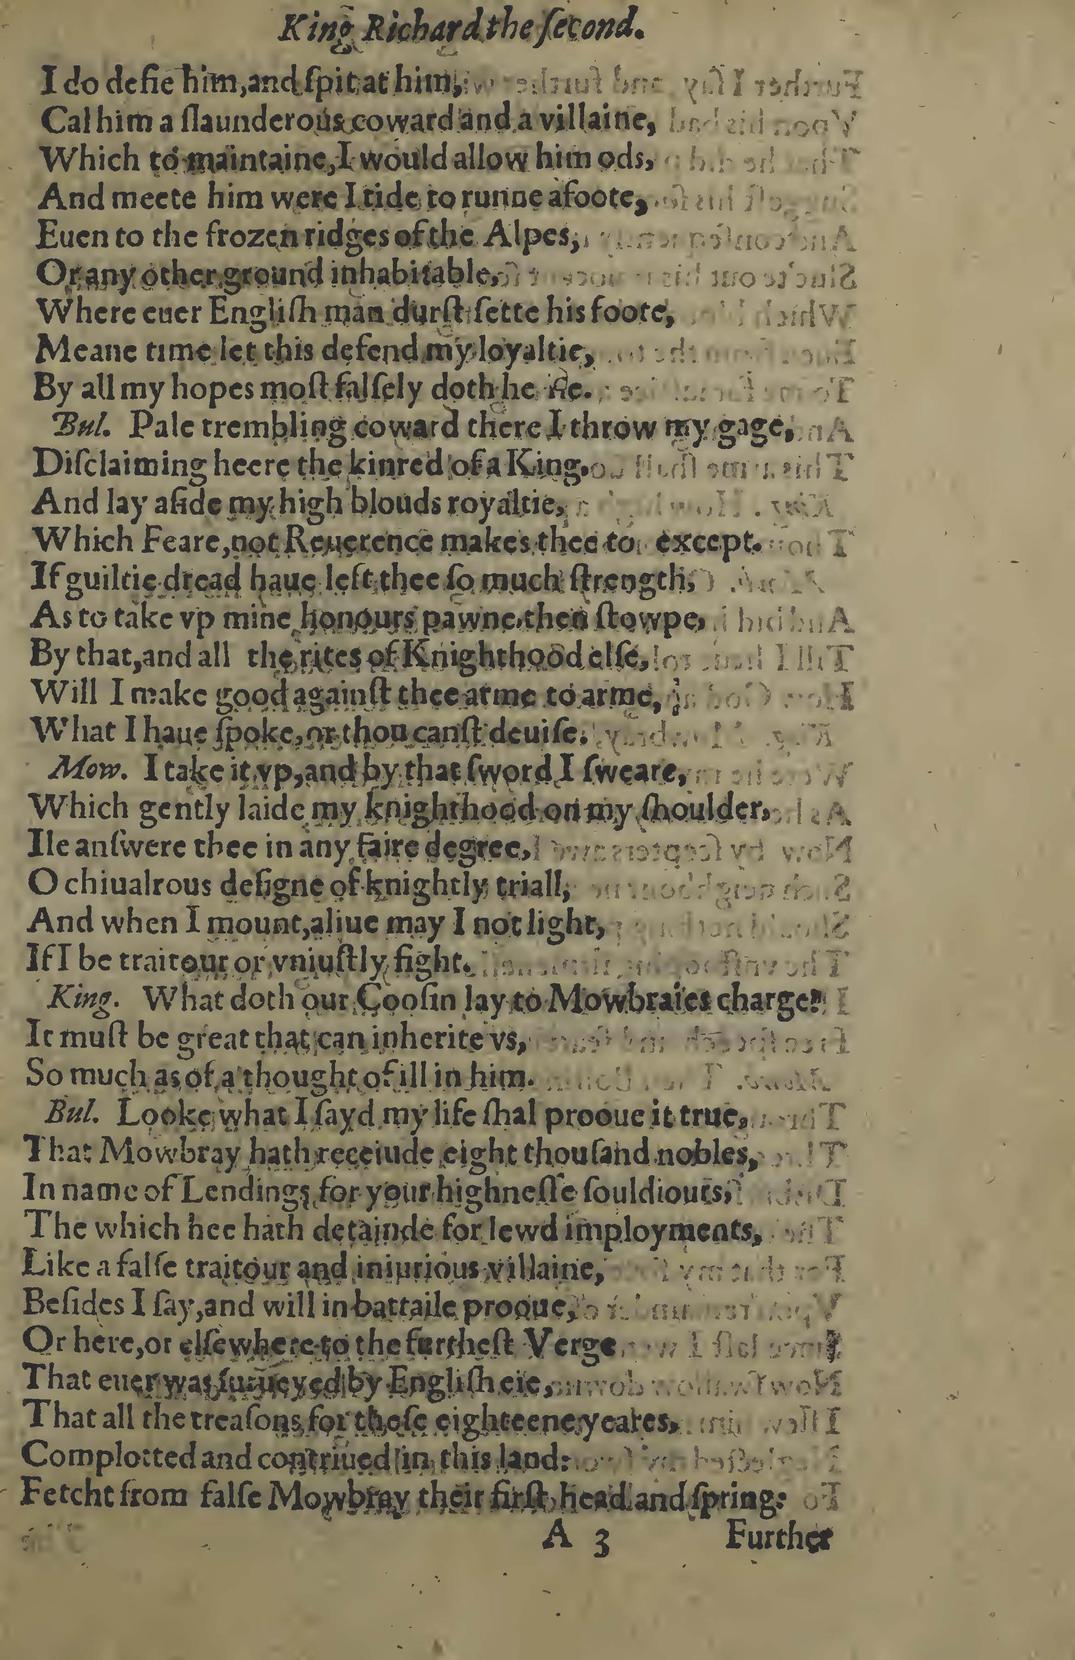 King Richard the ſecond.
I do defie him,and ſpit at him,
Cal him a ſlaunderous coward and a villaine,
Which to maintaine,I would allow him ods,
And meete him were I tide to runne afoote,
Euen to the frozen ridges of the Alpes,
Or any other ground inhabitable,
Where euer Engliſh man durſt ſette his foote,
Meane time let this defend my loyaltie,
By all my hopes moſt falſely doth he lie.
Bul. Pale trembling coward there I throw my gage,
Diſclaiming heere the kinred of a King,
And lay aſide my high blouds royaltie,
Which Feare,not Reuerence makes thee to except.
If guiltie dread haue left thee ſo much ſtrength,
As to take vp mine honours pawne,then ſtowpe,
By that,and all the rites of Knighthood elſe,
Will I make good againſt thee arme to arme,
What I haue ſpoke,or thou canſt deuiſe.
Mow. I take it vp,and by that ſword I ſweare,
Which gently laide my knighthood on my ſhoulder,
Ile anſwere thee in any faire degree,
O chiualrous deſigne of knightly triall,
And when I mount,aliue may I not light,
If I be traitour or vniuſtly fight.
King. What doth our Cooſin lay to Mowbraies charge?
It muſt be great that can inherite vs,
So much as of a thought of ill in him.
Bul. Looke what I ſayd my life ſhal prooue it true,
That Mowbray hath receiude eight thouſand nobles,
In name of Lendings for your highneſſe ſouldiours,
The which hee hath detainde for lewd imployments,
Like a falſe traitour and iniurious villaine,
Beſides I ſay,and will in battaile prooue,
Or here,or elſewhere to the furtheſt Verge
That euer was ſurueyed by Engliſh eie,
That all the treaſons for theſe eighteene yeares,
Complotted and contriued in this land:
Fetcht from falſe Mowbray their firſt head and ſpring:
A 3 Further